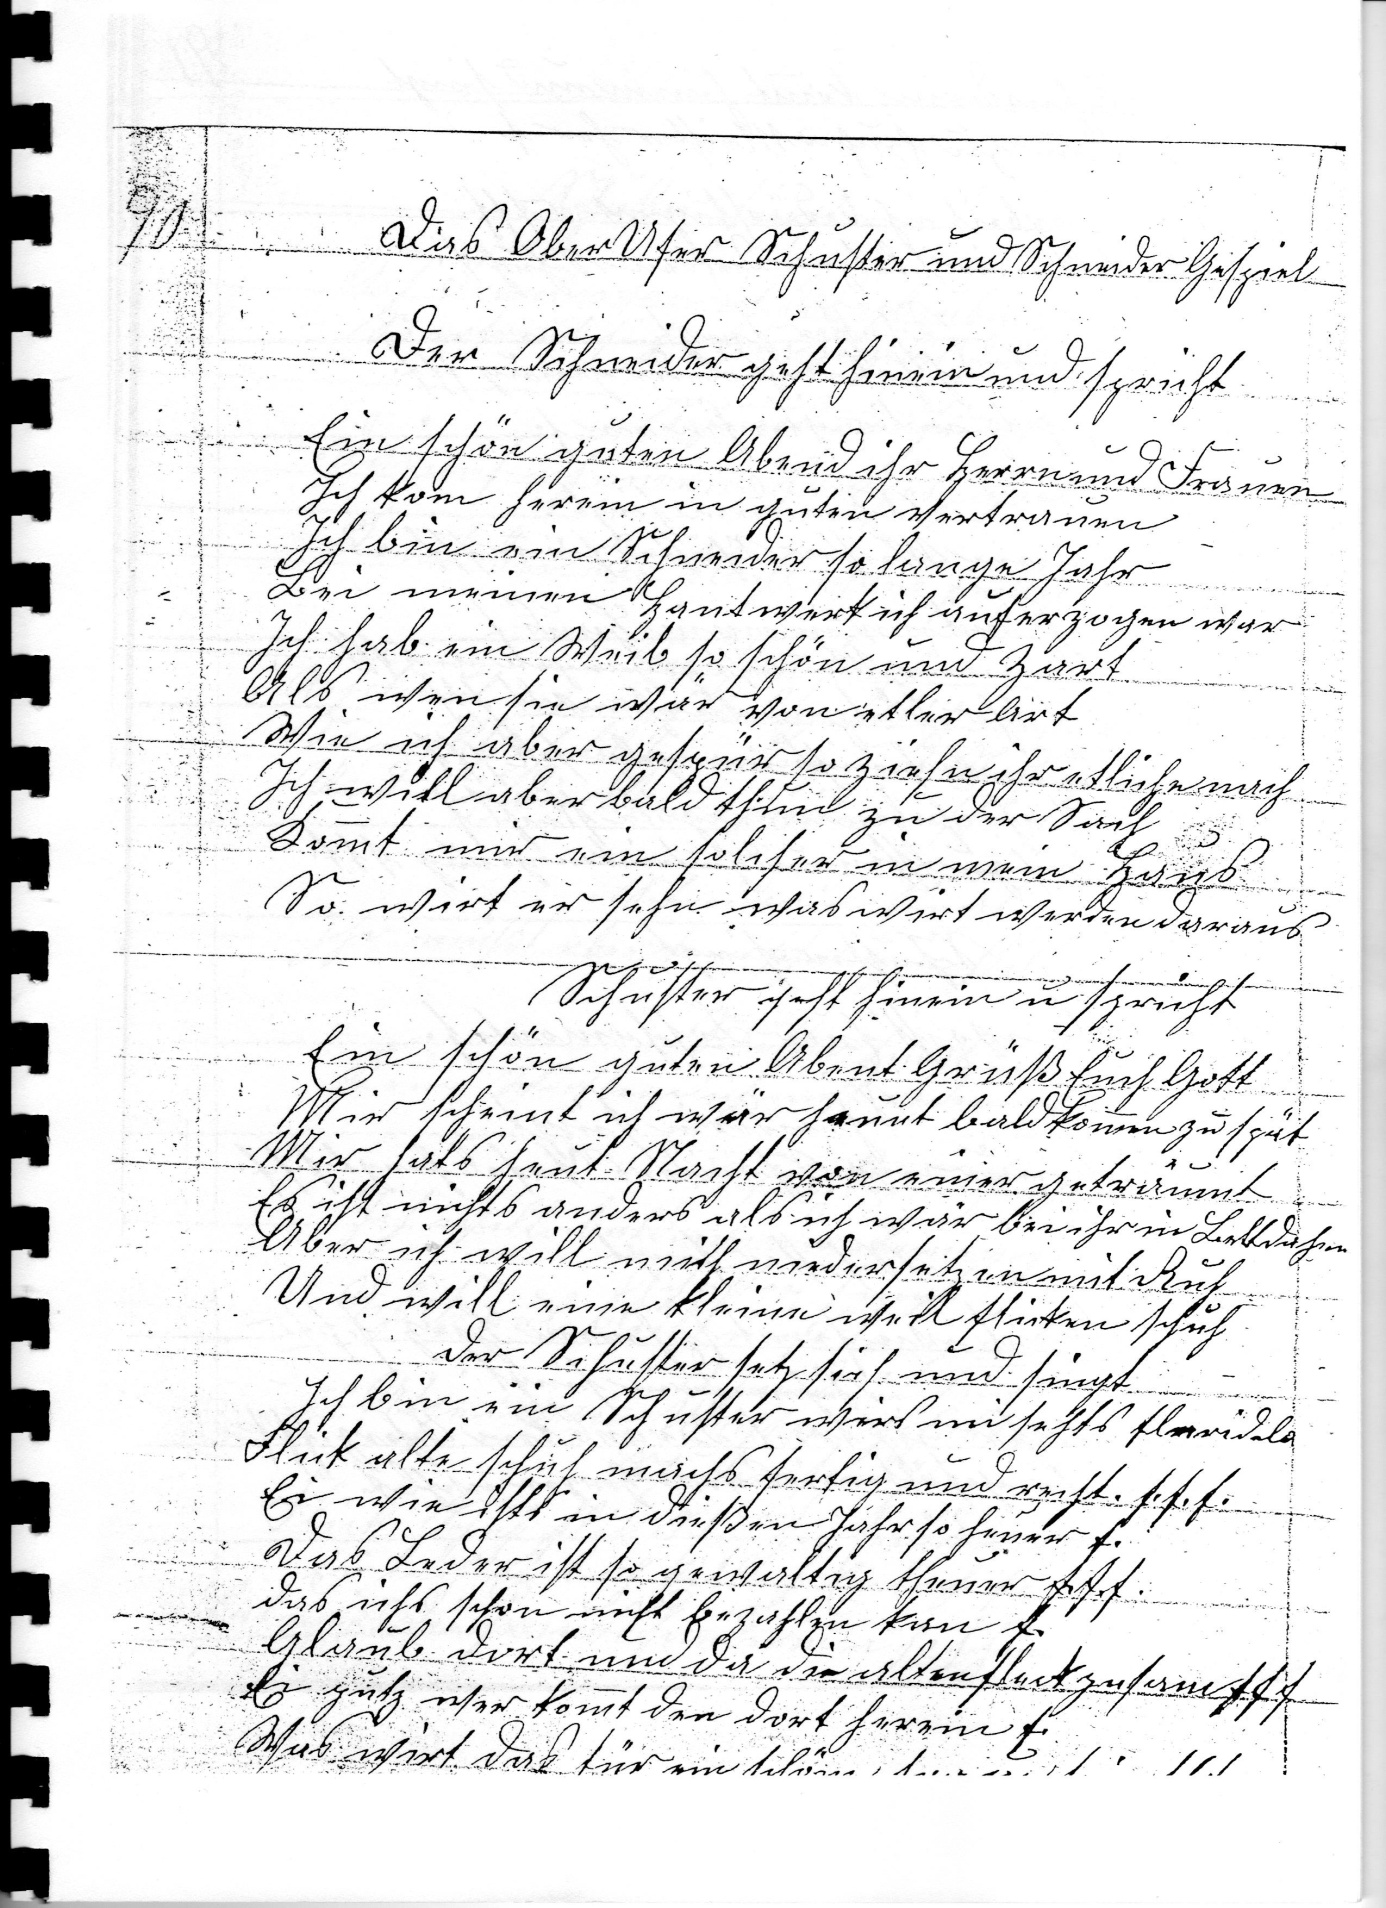 90
Das Ober Ufer Schuster und Schneider Gespiel
Der Schneider geht hinein und spricht
Ein schön guten Abend ihr Herrn und Frauen
Ich kom herein in guten Vertrauen
Ich bin ein Schneider so lange Jahr
Bei meinen Hantwerk ich auferzogen war
Ich hab ein Weib so schön und zart
Als wen sie wär von etler Art
Wie ich aber gespür so ziehn ihr etliche nach
Ich will aber bald thun zu der Sach
Kommt mir ein solcher in mein Haus
So wirt er sehn was wirt werden daraus
Schuster geht hinein u spricht
Ein schön guten Abent Grüß Euch Gott
Mir scheint ich wär heunt bald kommen zu spät
Mir hats heut Nacht von einer geträumt
Es ist nichts anders als ich wär bei ihr in Bett
Aber ich will mich niedersetzen mit Ruh
Und will eine kleine weil flicken schuh
der Schuster setz sich und singt
Ich bin ein Schuster wies mi sehts
Flick alte schuh machs fertig und recht. f. f. f.
Ei wie ists in dießen Jahr so heuer f.
Das Leder ist so gewaltig theuer f.f.f.
das ichs schon nicht bezahlen kan f.
Glaub dort und da die alten fleck zusam fff
Ei putz wer kommt den dort herein f.
Was wirt das für ein